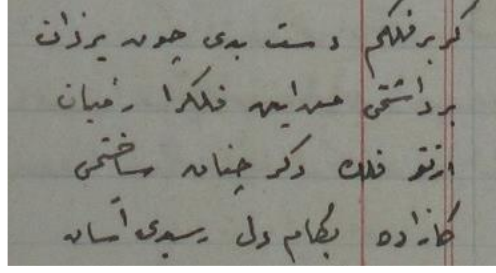 گر بر فلکم دست بدی چون یزدان
برداشتمی من این فلک را ز میان
از نو فلک دگر چنان ساختمی
کازاده بکام دل رسیدی آسان